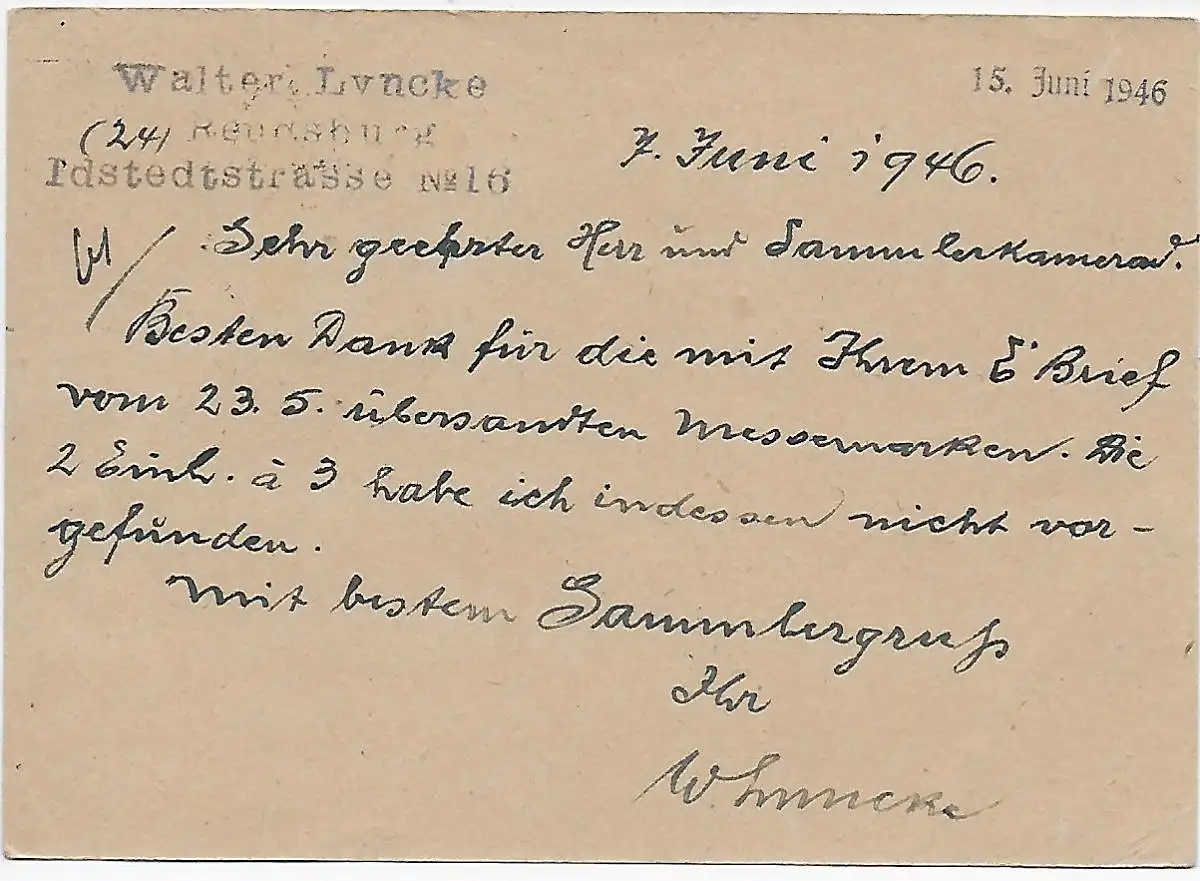 Walter Lyncke
15. Juni 1946
(24) Rendsburg
Idstedtstrasse №16
7. Juni 1946.
Sehr geehrter Herr und Sammlerkamerad.
Besten Dank für die mit Ihrem E' Brief
vom 23. 5. übersandten Messemarken. Die
2 Einh. à 3 habe ich indessen nicht vor-
gefunden.
Mit bestem Sammlergruß
Ihr
W. Lyncke